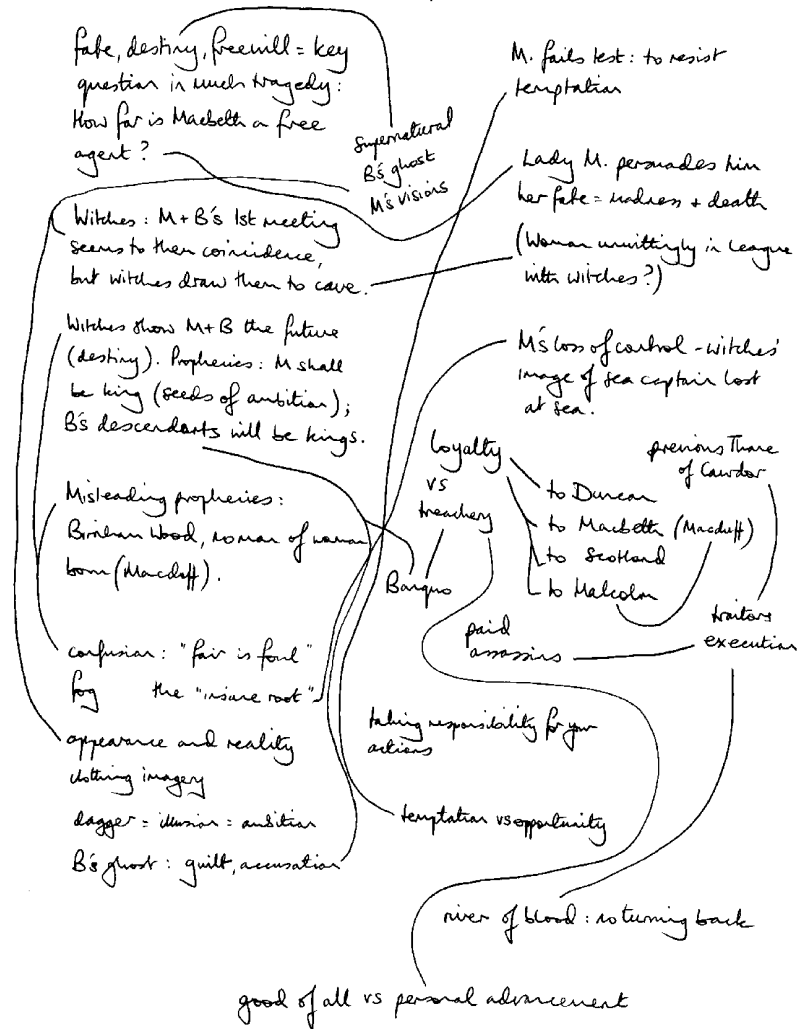 fate, destiny, freewill = key
question in much tragedy:
How far is Macbeth a free
agent?
supernatural
B's ghost
M's visions
Witches: M + B's 1st meeting
seems to them coincidence,
but witches draw them to cave.
Witches show M + B the future
(destiny). Prophecies: M shall
be king (seeds of ambition);
B's descendants will be kings.
Misleading prophecies:
Birnham Wood, no man of woman
born (Macduff).
confusion: "fair is foul"
fog the "insane root"
appearance and reality
clothing imagery
dagger = illusion = ambition
B's ghost: guilt, accusation
M. fails test: to resist
temptation
Lady M. persuades him
her fate = madness + death
(Woman unwittingly in league
with witches?)
M's loss of control - witches'
image of sea captain lost
at sea.
loyalty
vs
treachery
Banquo
to Duncan
to Macbeth (Macduff)
to Scotland
to Malcolm
previous Thane
of Cawdor
traitors
execution
paid
assassins
taking responsibility for your
actions
temptation vs opportunity
river of blood: no turning back
good of all vs personal advancement